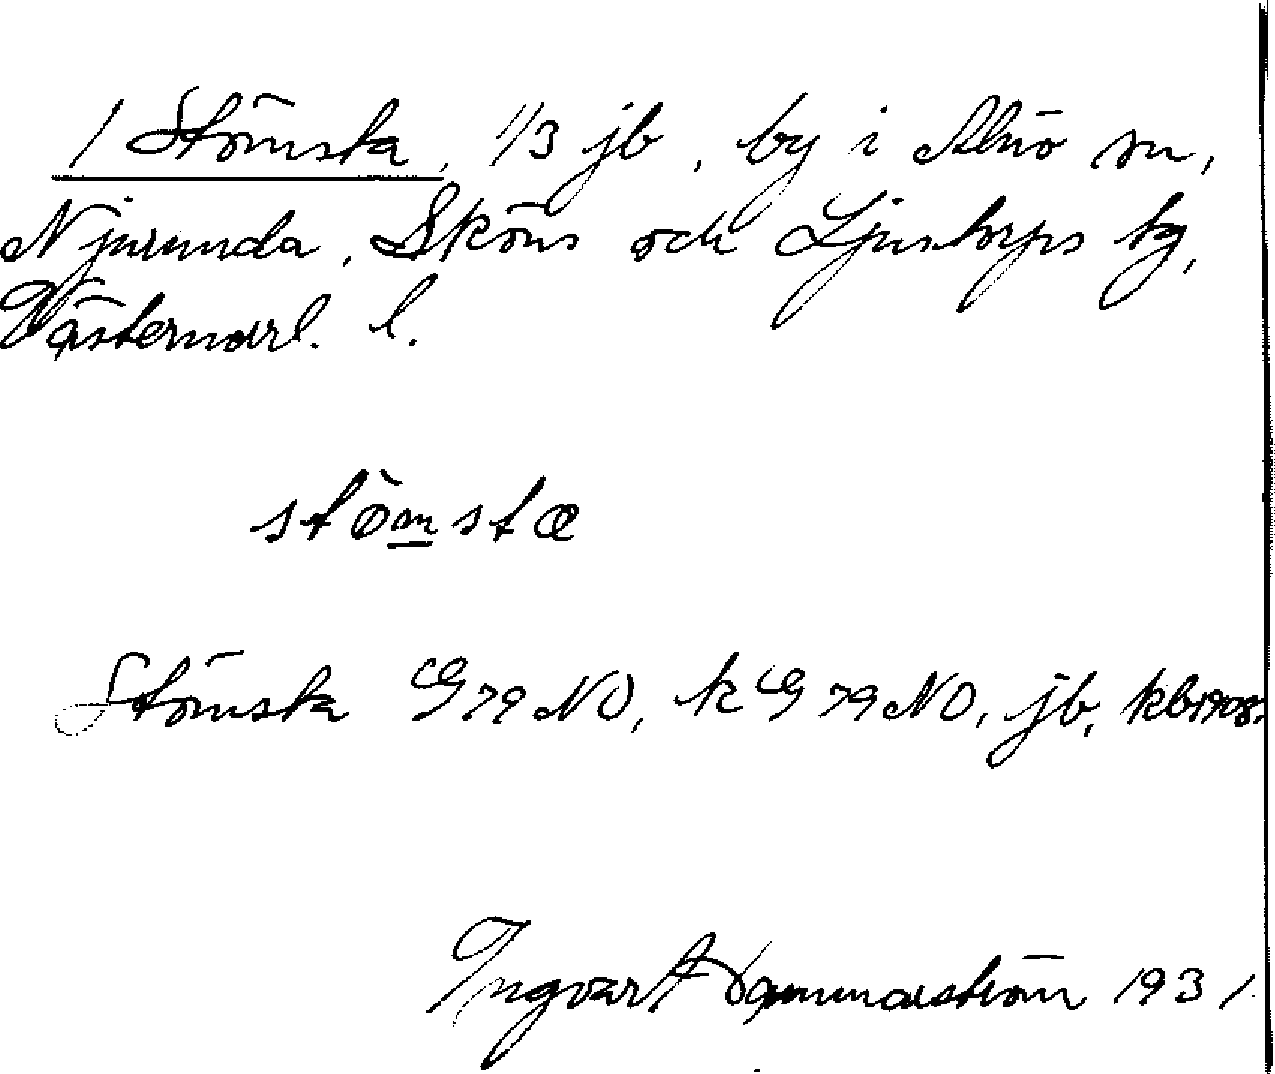 / Stömsta, 1/3 jb, by i Alnö sn,
Njurunda, Sköns och Ljustorps tg,
Västernorrl. l.
stömsta
Stömsta G 79 NO, k G 79 NO, jb, kb 1908.
Ingvar Hammarström 1931.